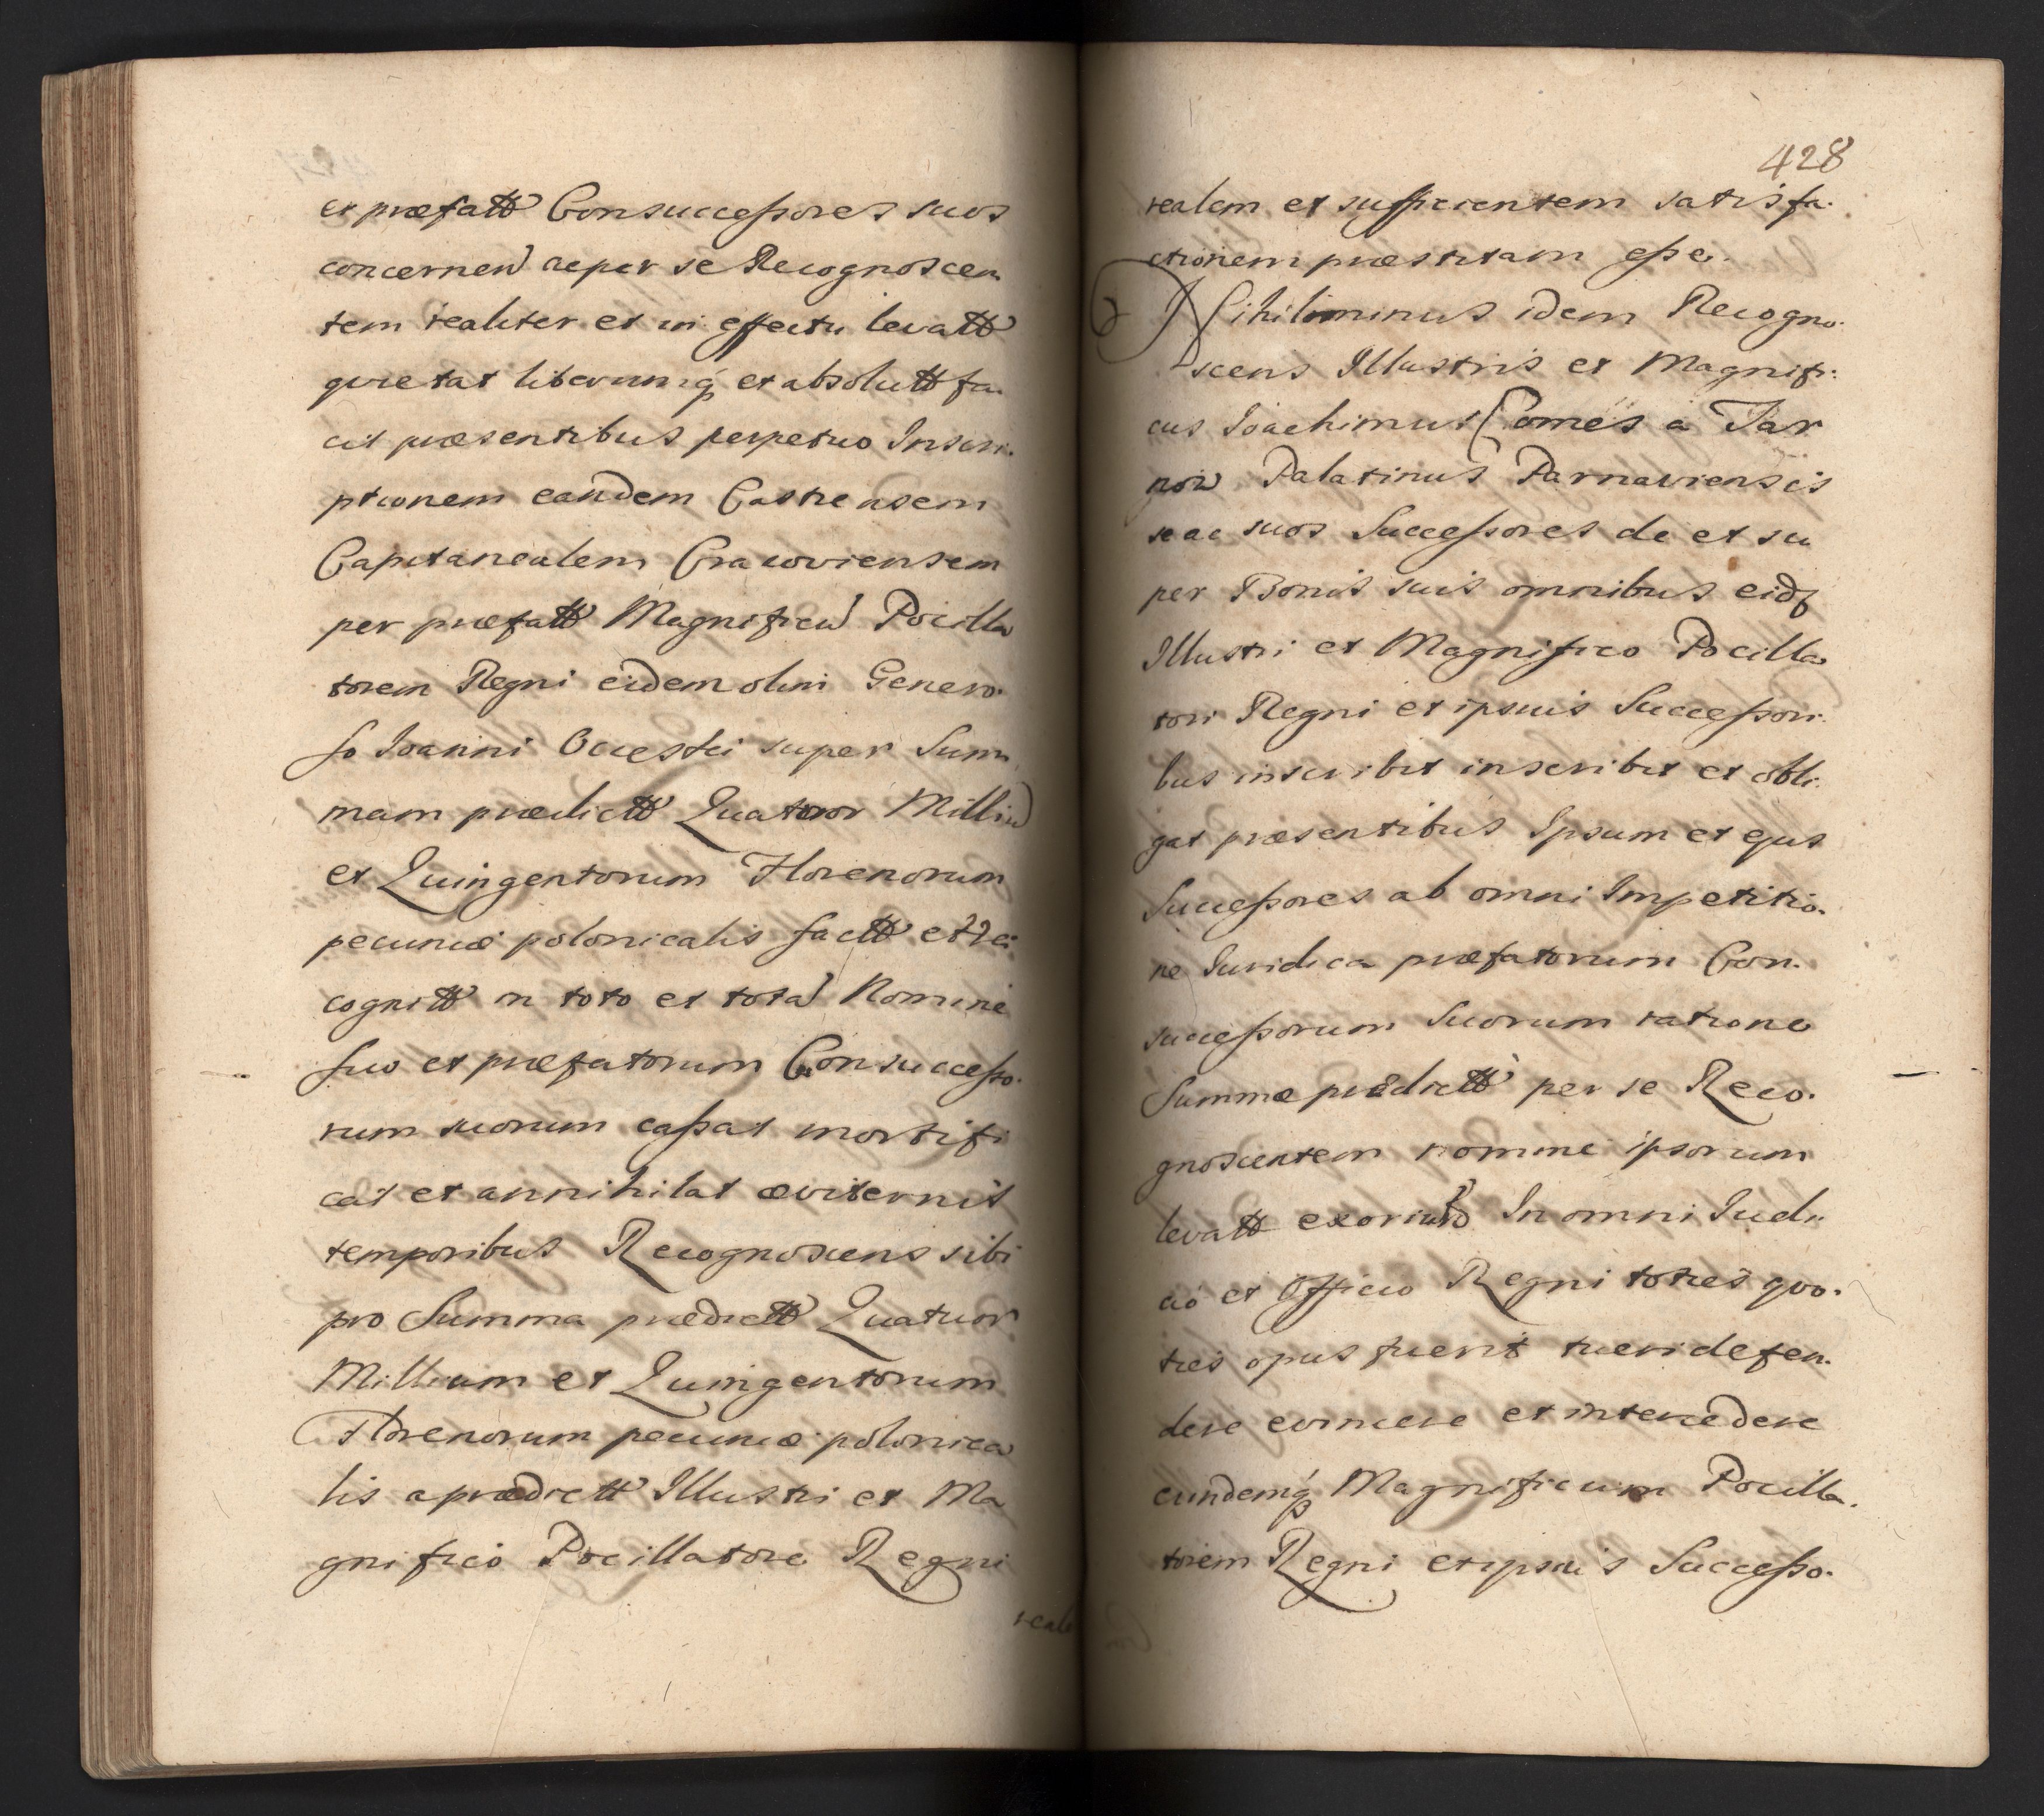 et præfatt Consuccessores suos
concernen ac per se Recognoscen
tem realiter et in effectu levatt
quietat liberumq et absolutt fa
cit præsentibus perpetuo Inscri.
ptionem eandem Castrensem
Capitanealem Cracoviensem
per præfatt Magnificu Pocilla
torem Regni eidem olim Genero
so Ioanni Ocieski super Sum
mam prædictt Quatuor Milliu
et Quingentorum Florenorum
pecuniæ polonicalis factt et re
cognitt in toto et tota Nomine
suo et præfatorum Consuccesso.
rum suorum cassat mortifi
cat et annihilat æviternis
temporibus Recognoscens sibi
pro Summa prædictt Quatuor
Millium et Quingentorum
Florenorum pecuniæ polonica
lis a prædictt Illustri et Ma
gnifico Pocillatore Regni
reale
428
realem et sufficientem satisfa.
ctionem præstitam esse.
Nihilominus idem Recogno.
scens Illustris et Magnifi:
cus Ioachimus Comes a Tar
now Palatinus Parnaviensis
se ac suos Successores de et su
per Bonis suis omnibus eidq
Illustri et Magnifico Pocilla
tori Regni et ipsuis Successori.
bus inscribit inscribit et obli.
gat præsentibus Ipsum et ejus
Successores ab omni Impetitio.
ne Iuridica præfatorum Con.
successorum Suorum ratione
Summæ prædictt per se Reco.
gnoscentem nomine ipsorum
levatt In omni Iudi
cio et Officio Regni toties quo.
ties opus fuerit tueri defen.
dere evincere et intercedere
eundemq Magnificum Pocilla.
torem Regni et ipsuis Successo.